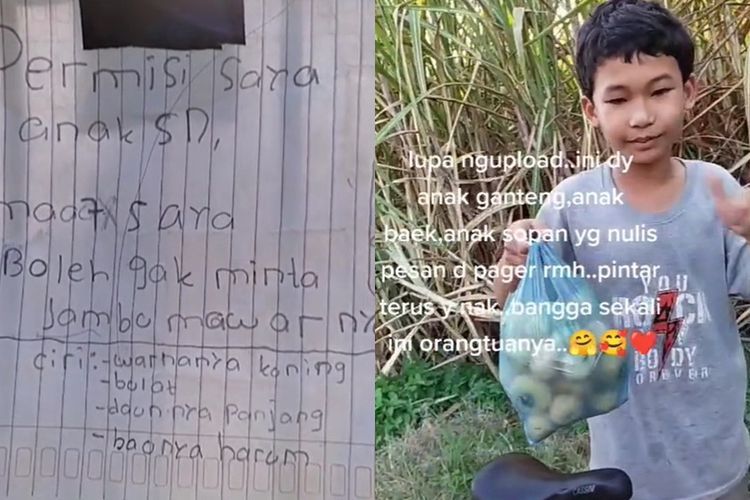 Permisi saya
anak SD,
maaf saya
Boleh gak minta
Jambu mawar ny
ciri: -warnanya kuning
-bulat
-daunnya panjang
-baunya harum
lupa ngupload..ini dy
anak ganteng,anak
baek,anak sopan yg nulis
pesan d pager rmh..pintar
terus y nak..bangga sekali
ini orangtuanya..🤗🥰❤️
YOU
ROCK
MY
BODY
FOREVER